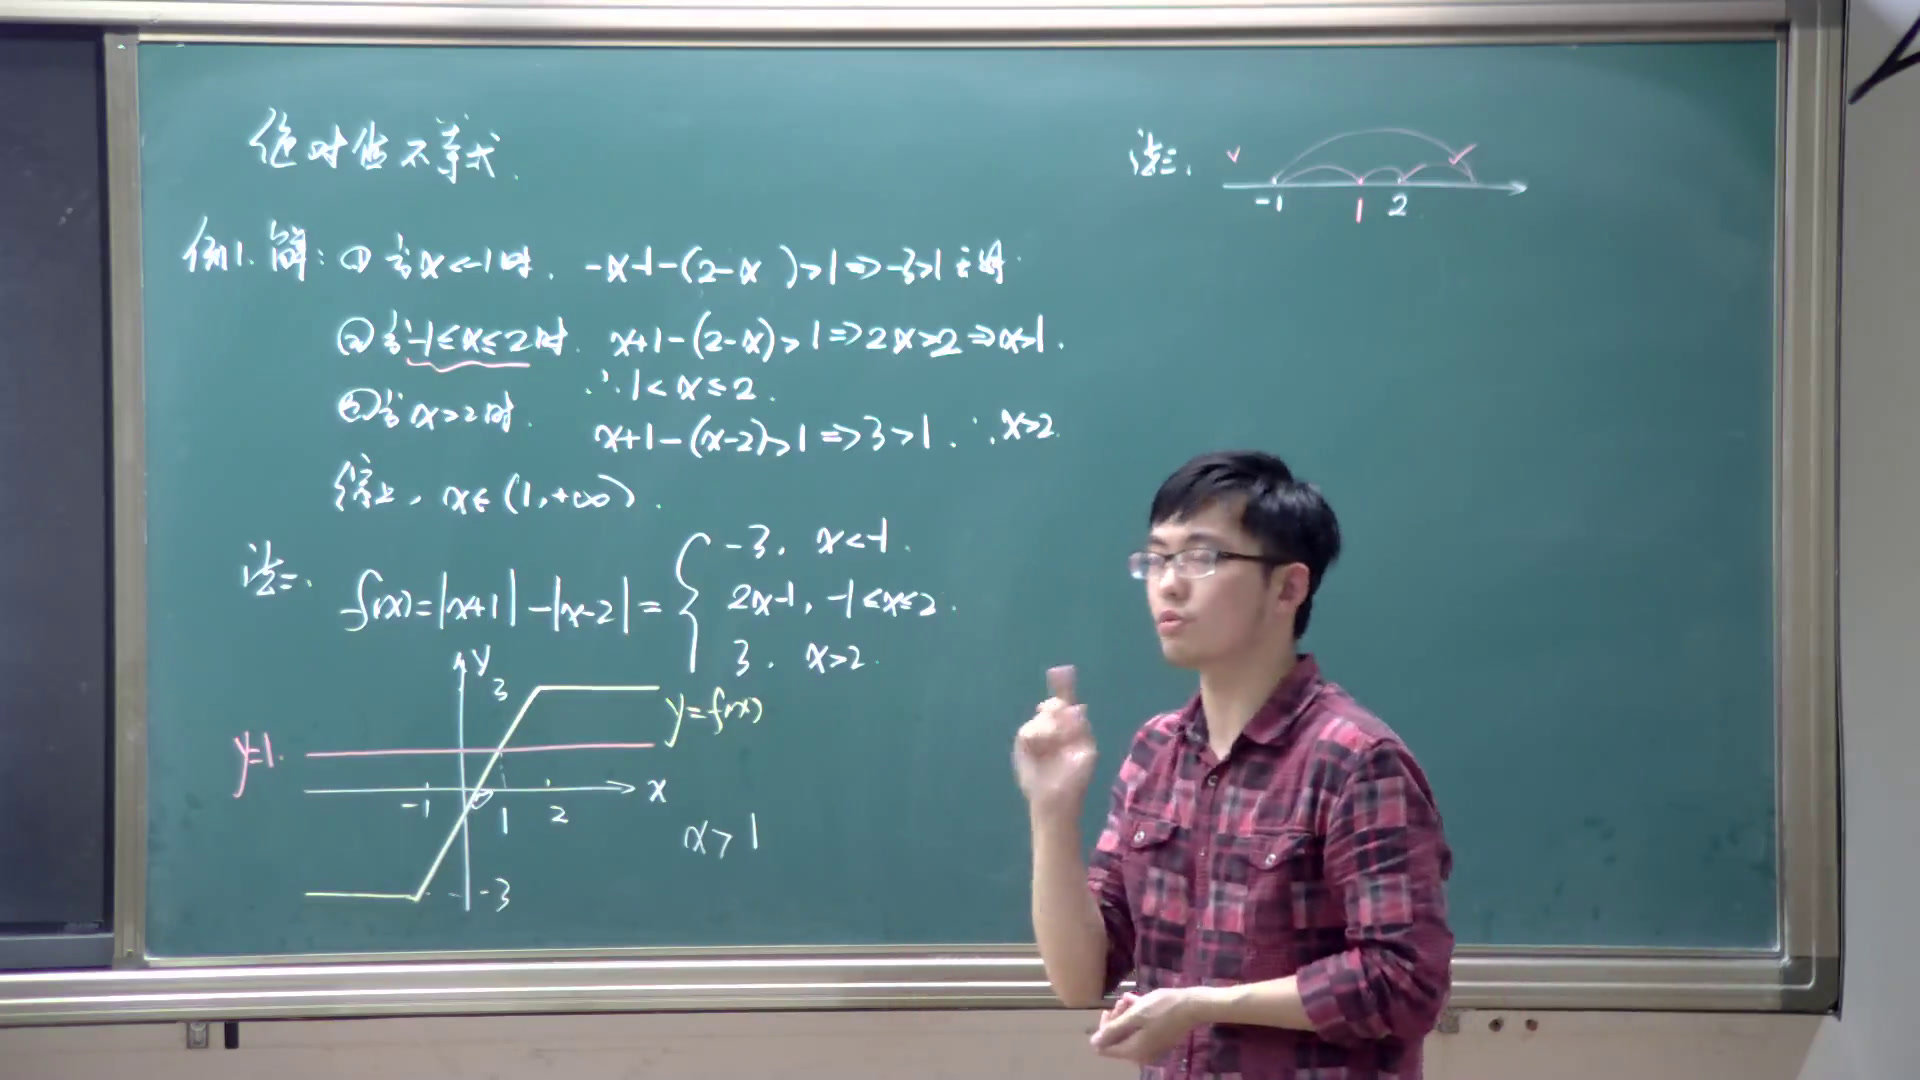 绝对值不等式.
例1. 解: ① 当x<-1时. -x-1-(2-x)>1⇒-3>1无解.
② 当-1≤x≤2时. x+1-(2-x)>1⇒2x>2⇒x>1.
∴1<x≤2.
③ 当x>2时. x+1-(x-2)>1⇒3>1. ∴x>2.
综上, x∈(1,+∞).
法二. f(x)=|x+1|-|x-2|= { -3, x<-1.
2x-1, -1≤x≤2.
3. x>2.
y
3
y=f(x)
y=1.
x
-1 0 1 2
x>1
-3
法三.
-1 1 2